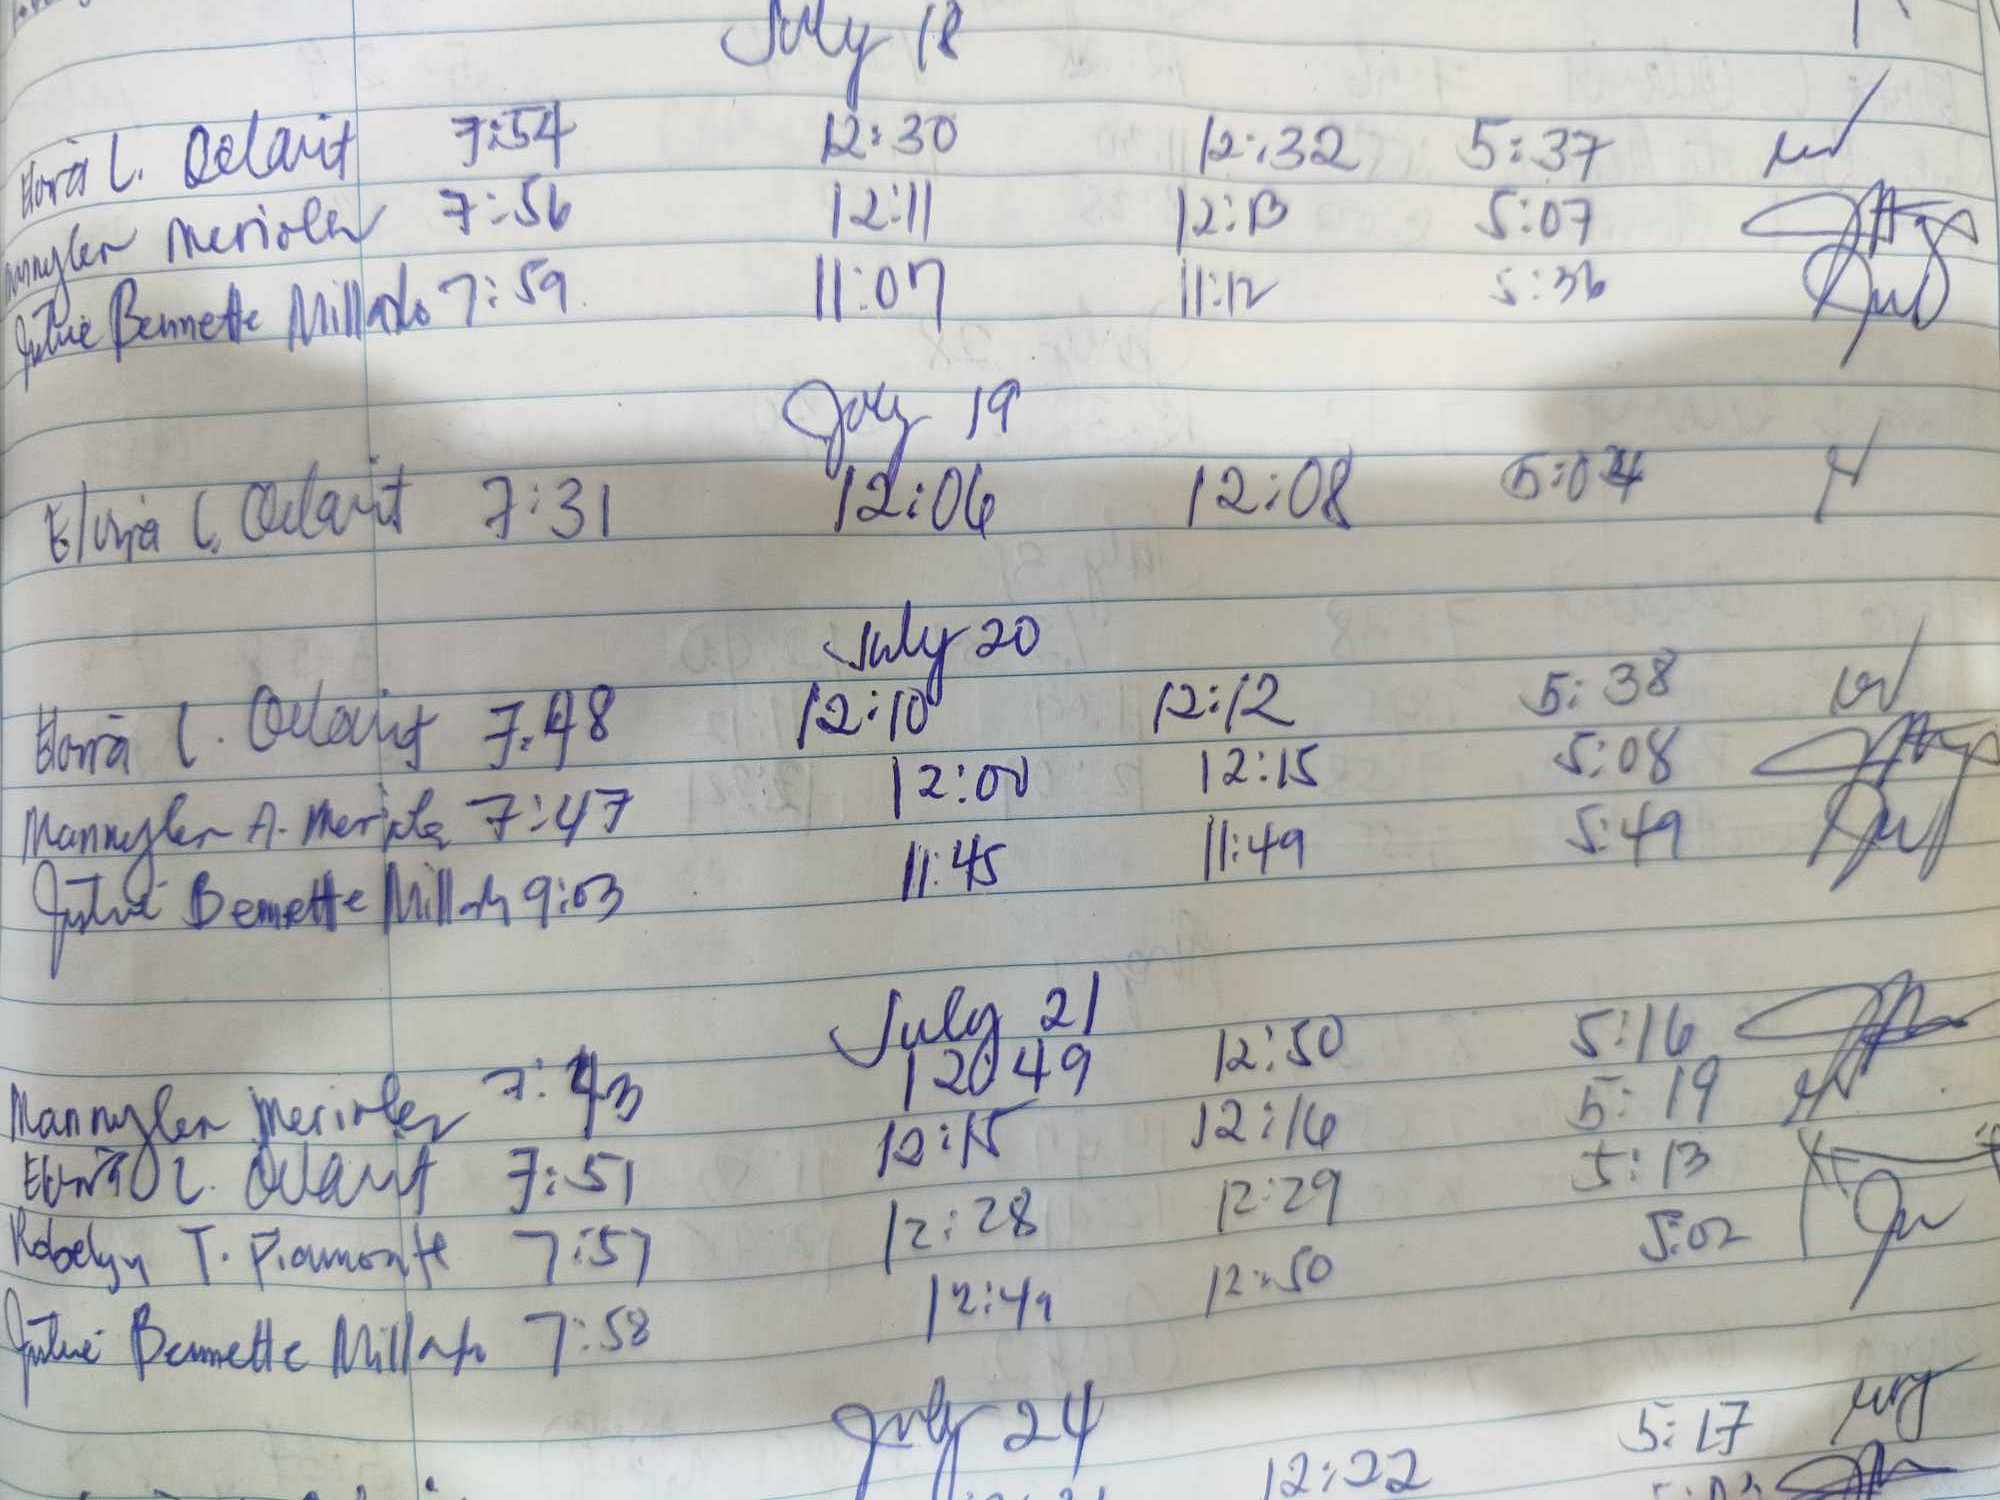 July 18
L. Odlarit 7:54 12:30 12:32 5:37
7:56 12:11 12:13 5:07
Julie Bennette Millado 7:59 11:07 11:12 5:36
July 19
Elvira L. Odlarit 7:31 12:06 12:08 5:04
July 20
Elvira L. Odlarit 7:48 12:10 12:12 5:38
Mannyler A. Meriales 7:47 12:00 12:15 5:08
Julie Bennette Millado 9:03 11:45 11:49 5:49
July 21
Mannyler Meriales 7:43 12:49 12:50 5:16
Elvira L. Odlarit 7:51 12:15 12:16 5:19
Robelyn T. Piamonte 7:57 12:28 12:29 5:13
Julie Bennette Millado 7:58 12:49 12:50 5:02
July 24
12:22 5:17